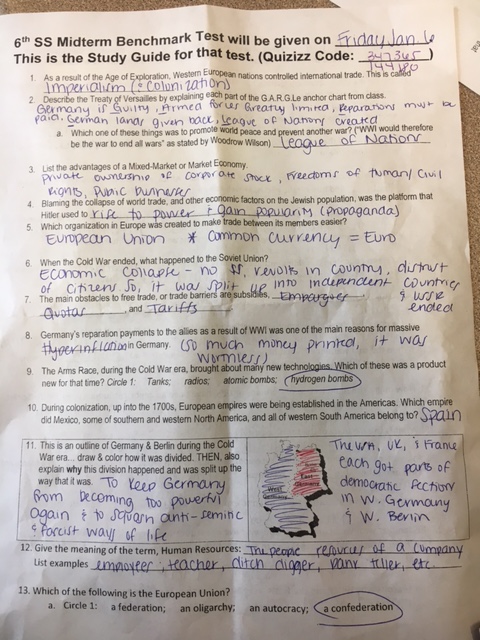 6th SS Midterm Benchmark Test will be given on Friday Jan 6
This is the Study Guide for that test. (Quizizz Code: 347365)
144780
1. As a result of the Age of Exploration, Western European nations controlled international trade. This is called
Imperialism (& Colonization)
2. Describe the Treaty of Versailles by explaining each part of the G.A.R.G.L.e anchor chart from class.
Germany is Guilty, Armed forces Greatly limited, Reparations must be
paid, German lands given back, League of Nations created
a. Which one of these things was to promote world peace and prevent another war? ("WWI would therefore
be the war to end all wars" as stated by Woodrow Wilson) League of Nations
3. List the advantages of a Mixed-Market or Market Economy.
Private ownership of corporate stock, Freedoms of Human/Civil
Rights, Public businesses
4. Blaming the collapse of world trade, and other economic factors on the Jewish population, was the platform that
Hitler used to rise to power & gain popularity (propaganda)
5. Which organization in Europe was created to make trade between its members easier?
European Union * Common currency = Euro
6. When the Cold War ended, what happened to the Soviet Union?
Economic collapse - no $$, revolts in country, distrust
of citizens so, it was split up into independent countries
& USSR
ended
7. The main obstacles to free trade, or trade barriers are subsidies, Embargoes,
Quotas, and Tariffs
8. Germany's reparation payments to the allies as a result of WWI was one of the main reasons for massive
Hyperinflation in Germany. (so much money printed, it was
worthless)
9. The Arms Race, during the Cold War era, brought about many new technologies. Which of these was a product
new for that time? Circle 1: Tanks; radios; atomic bombs; hydrogen bombs
10. During colonization, up into the 1700s, European empires were being established in the Americas. Which empire
did Mexico, some of southern and western North America, and all of western South America belong to? Spain
11. This is an outline of Germany & Berlin during the Cold
War era... draw & color how it was divided. THEN, also
explain why this division happened and was split up the
way that it was. To keep Germany
from becoming too powerful
again & to squash anti-semitic
& fascist ways of life
West Germany
East Germany
The USA, UK, & France
each got parts of
democratic faction
in W. Germany
& W. Berlin
12. Give the meaning of the term, Human Resources: The people resources of a company
List examples employees, teacher, ditch digger, bank teller, etc.
13. Which of the following is the European Union?
a. Circle 1: a federation; an oligarchy; an autocracy; a confederation